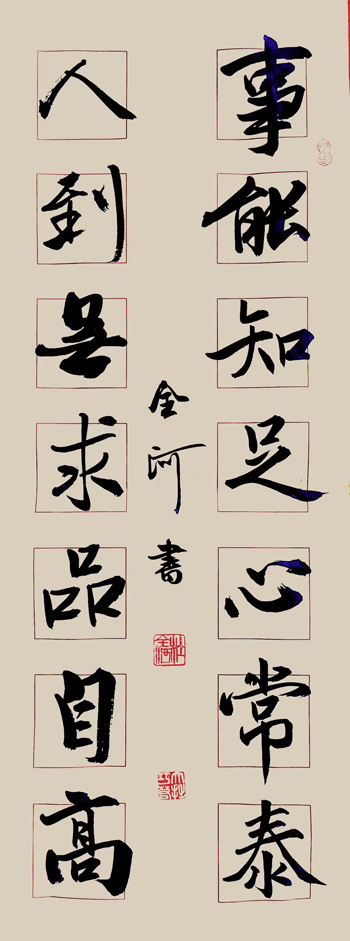 事能知足心常泰
人到無求品自高
金河書